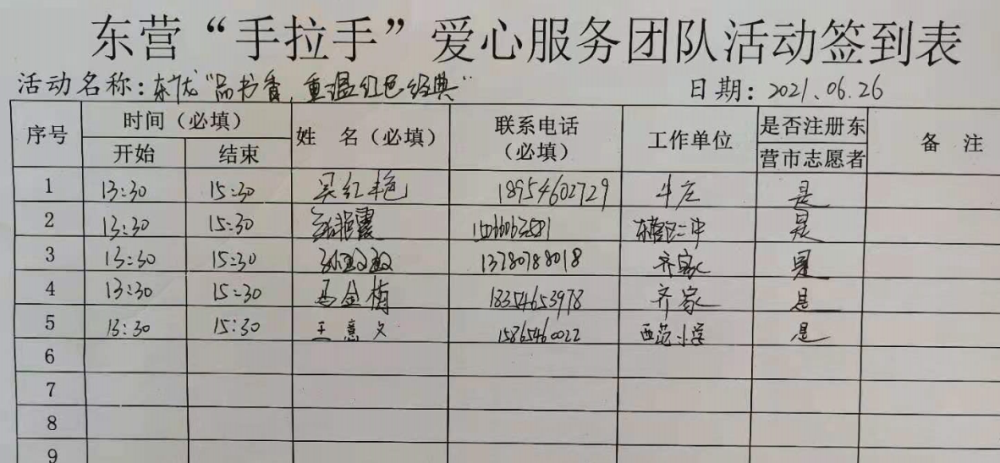 东营“手拉手”爱心服务团队活动签到表
活动名称：东优“品书香，重温红色经典” 日期：2021.06.26
序号 时间（必填） 姓 名（必填） 联系电话（必填） 工作单位 是否注册东营市志愿者 备 注
开始 结束
1 13:30 15:30 吴红艳 18954602729 牛庄 是
2 13:30 15:30 东营区二中 是
3 13:30 15:30 孙敏敏 13780788018 齐家 是
4 13:30 15:30 马金梅 18354653978 齐家 是
5 13:30 15:30 王意义 15865460022 西范小学 是
6
7
8
9